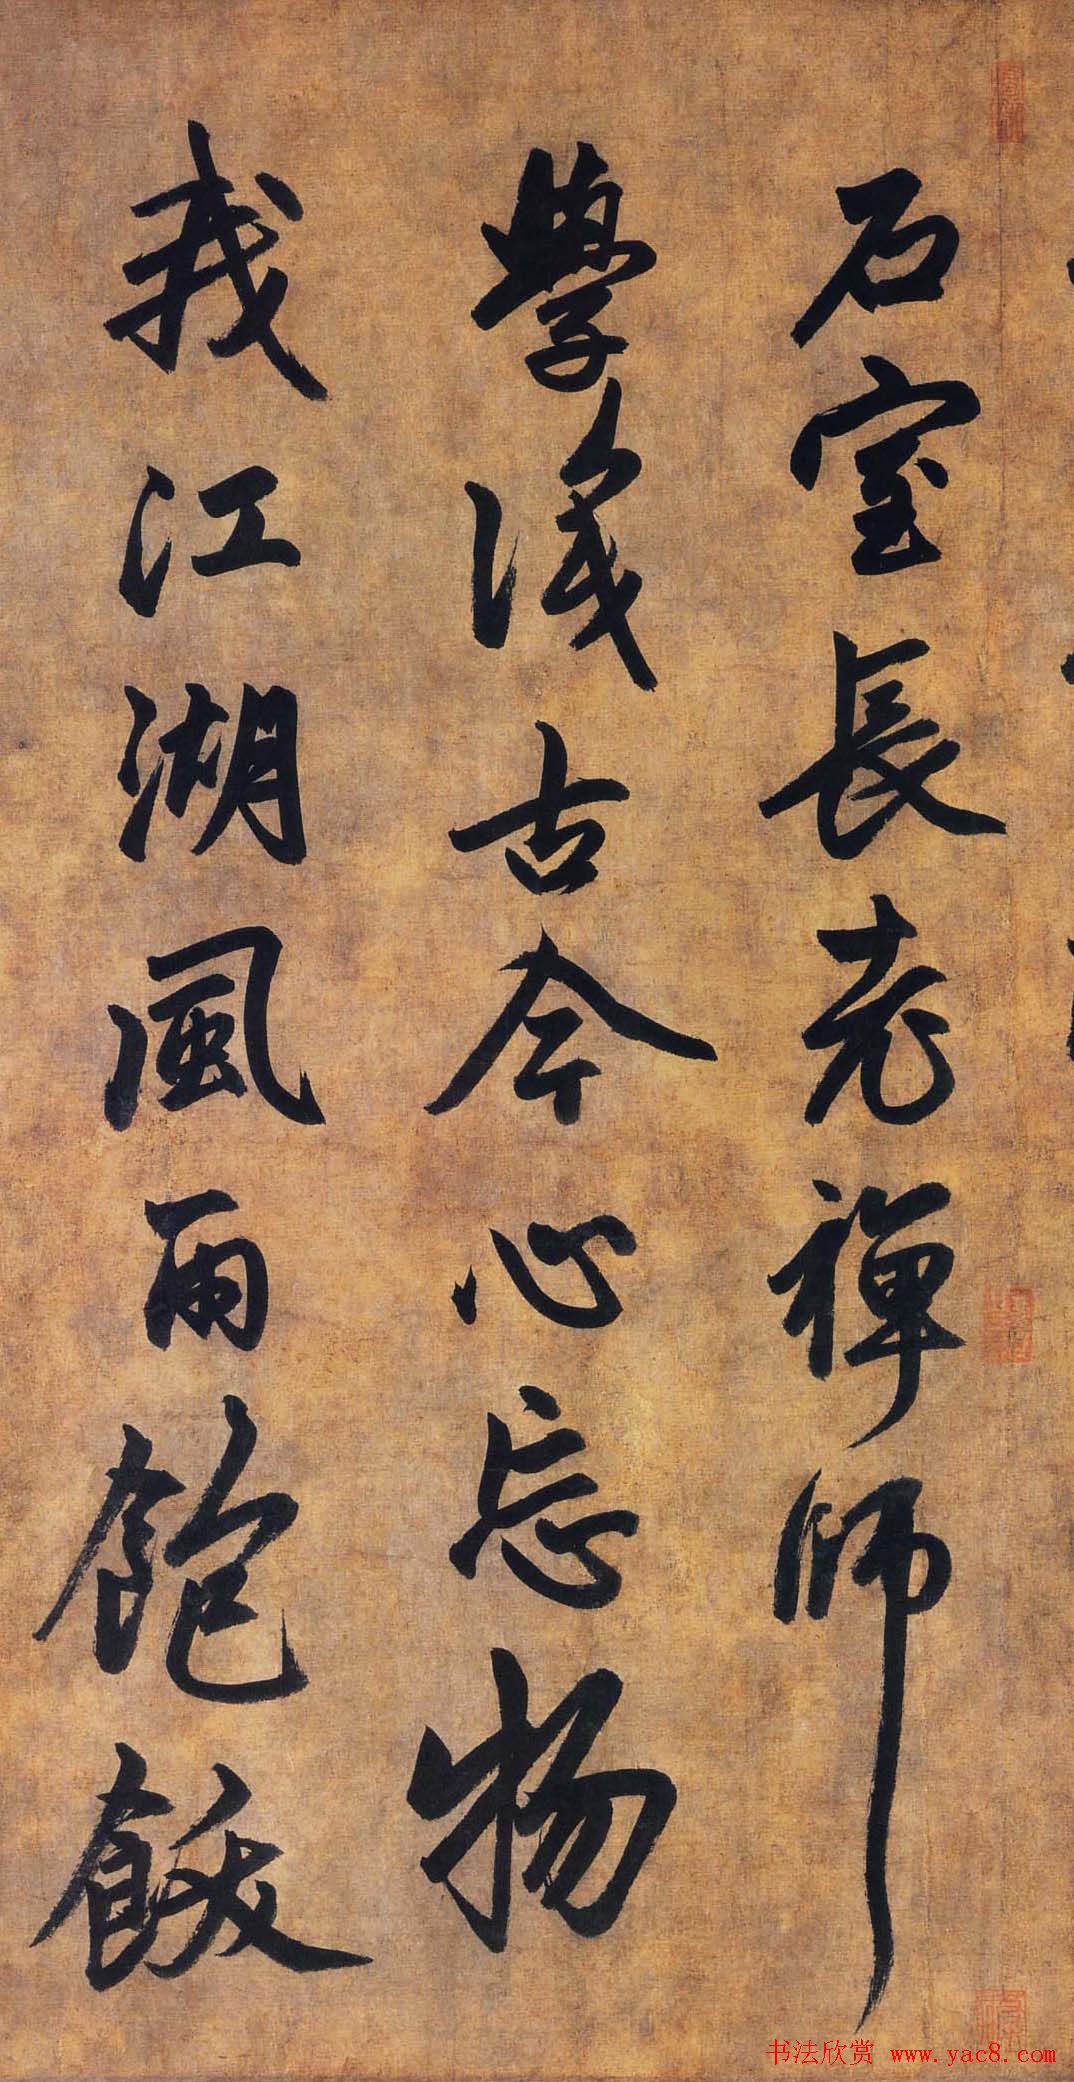 石室長老禪師
學識古今心忘物
我江湖風雨飽餓
书法欣赏 www.yac8.com